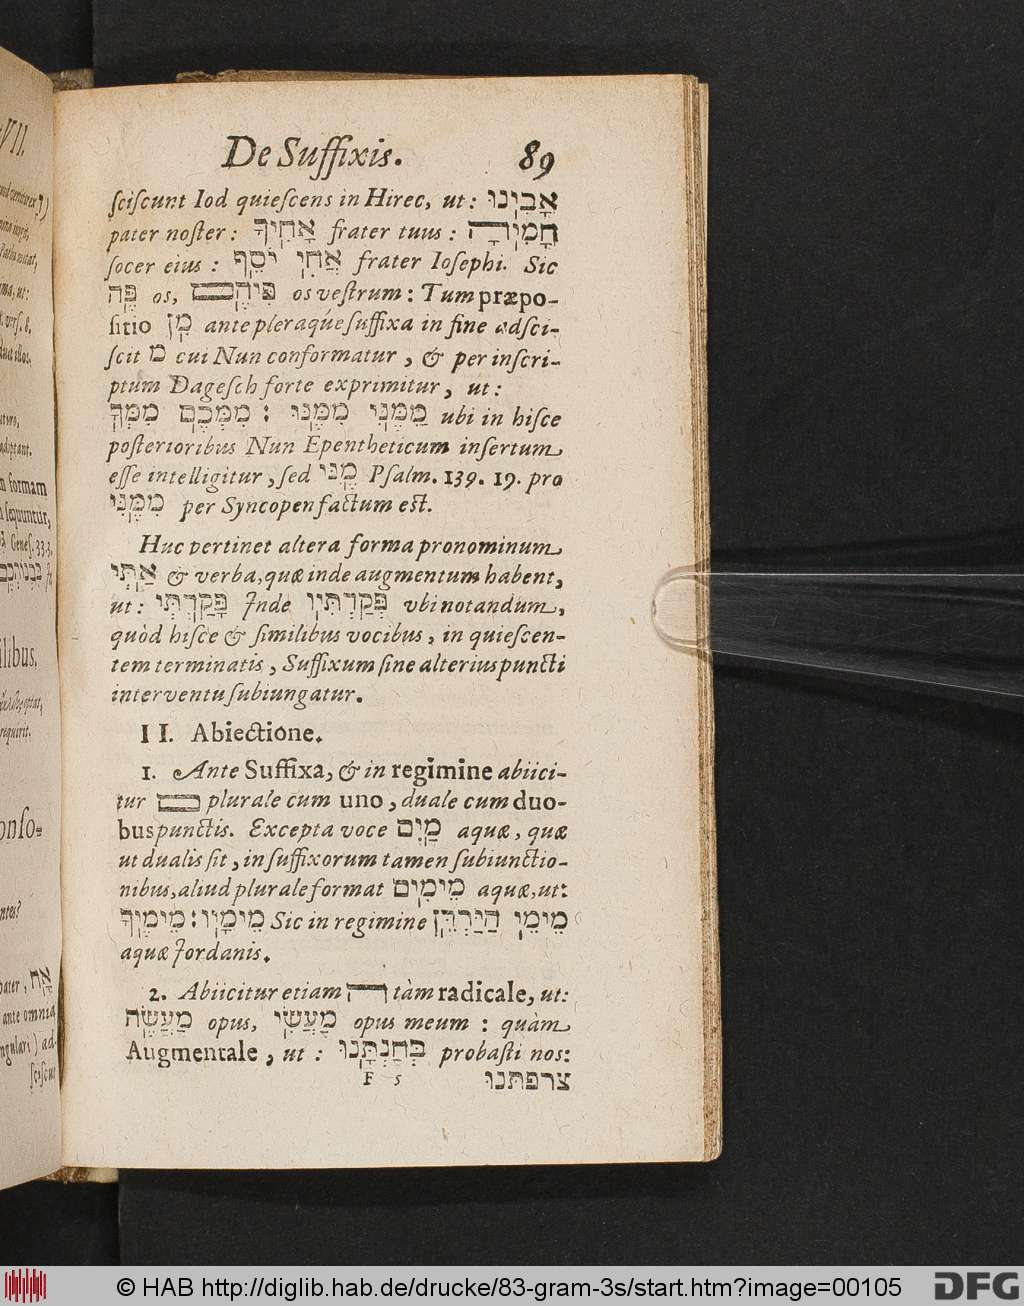 De Suffixis. 89
ſciſcunt Iod quieſcens in Hirec, ut: אָבִינוּ
pater noſter: אָחִיךָ frater tuus: חָמִיהָ
ſocer eius: אֲחִי יֹסֵף frater Ioſephi. Sic
פֶּה os, פִּיהֶם os veſtrum: Tum præpo-
ſitio מִן ante pleraq́ue ſuffixa in fine adſci-
ſcit מ cui Nun conformatur, & per inſcri-
ptum Dageſch forte exprimitur, ut:
מִמֶּנִּי מִמֶּנּוּ : מִמְּכֶם מִמְּךָ ubi in hiſce
poſterioribus Nun Epentheticum inſertum
eſſe intelligitur, ſed מֶנִּי Pſalm. 139. 19. pro
מִמֶּנִּי per Syncopen factum est.
Huc pertinet altera forma pronominum
אַתְּי & verba, quæ inde augmentum habent,
ut: פָּקַדְתְּי Inde פְּקַדְתִּיו vbi notandum,
quòd hiſce & ſimilibus vocibus, in quieſcen-
tem terminatis, Suffixum ſine alterius puncti
interventu ſubiungatur.
II. Abiectione.
1. Ante Suffixa, & in regimine abiici-
tur ם plurale cum uno, duale cum duo-
bus punctis. Excepta voce מַיִם aquæ, quæ
ut dualis ſit, in ſuffixorum tamen ſubiunctio-
nibus, aliud plurale format מֵימִים aquæ, ut:
מֵימָיו : מֵימֶיךָ Sic in regimine מֵימֵי הַיַּרְדֵּן
aquæ Jordanis.
2. Abiicitur etiam ה tàm radicale, ut:
מַעֲשֶׂה opus, מַעֲשִׂי opus meum : quàm
Augmentale, ut : בְּחַנְתָּנוּ probaſti nos:
F 5 צרפתנו
VII.
formam
ſequuntur,
Geneſ. 33.
ilibus,
requirit.
onſo-
pater, אָח
ante omnia
ngulari) ad-
ſciſcunt
© HAB http://diglib.hab.de/drucke/83-gram-3s/start.htm?image=00105 DFG